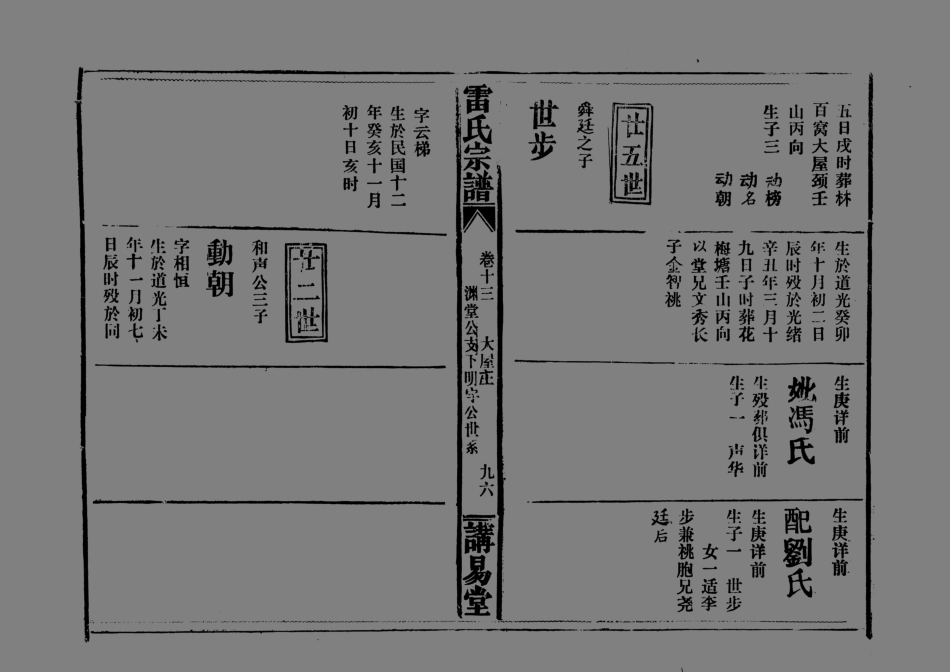 五日戌时葬林
百窝大屋颈壬
山丙向
生子三 动榜
动名
动朝
廿五世
舜廷之子
世步
生於道光癸卯
年十月初二日
辰时殁於光绪
辛丑年三月十
九日子时葬花
梅塘壬山丙向
以堂兄文秀长
子金智祧
生庚详前
妣馮氏
生殁葬俱详前
生子一 声华
生庚详前
配劉氏
生庚详前
生子一 世步
女一适李
步兼祧胞兄尧
廷后
雷氏宗譜
卷十三 大屋庄
渊堂公支下明宇公世系
九六
講易堂
字云梯
生於民国十二
年癸亥十一月
初十日亥时
廿二世
和声公三子
動朝
字相恒
生於道光丁未
年十一月初七
日辰时殁於同